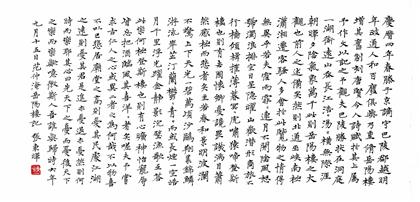 慶曆四年春滕子京謫守巴陵郡越明
年政通人和百廢俱興乃重脩岳陽樓
增其舊制刻唐賢今人詩賦於其上屬
予作文以記之予觀夫巴陵勝狀在洞庭
一湖銜遠山吞長江浩浩湯湯橫無際涯
朝暉夕陰氣象萬千此則岳陽樓之大
觀也前人之述備矣然則北通巫峽南極
瀟湘遷客騷人多會於此覽物之情得
無異乎若夫霪雨霏霏連月不開陰風怒
號濁浪排空日星隱曜山岳潛形商旅不
行檣傾楫摧薄暮冥冥虎嘯猿啼登斯
樓也則有去國懷鄉憂讒畏譏滿目蕭
然感極而悲者矣至若春和景明波瀾
不驚上下天光一碧萬頃沙鷗翔集錦鱗
游泳岸芷汀蘭鬱鬱青青而或長煙一空皓
月千里浮光躍金靜影沉璧漁歌互答
此樂何極登斯樓也則有心曠神怡寵辱
皆忘把酒臨風其喜洋洋者矣嗟夫予嘗
求古仁人之心或異二者之為何哉不以物喜
不以己悲居廟堂之高則憂其民處江湖
之遠則憂其君是進亦憂退亦憂然則何
時而樂耶其必曰先天下之憂而憂後天下
之樂而樂歟噫微斯人吾誰與歸時六年
九月十五日 范仲淹岳陽樓記 張東暉